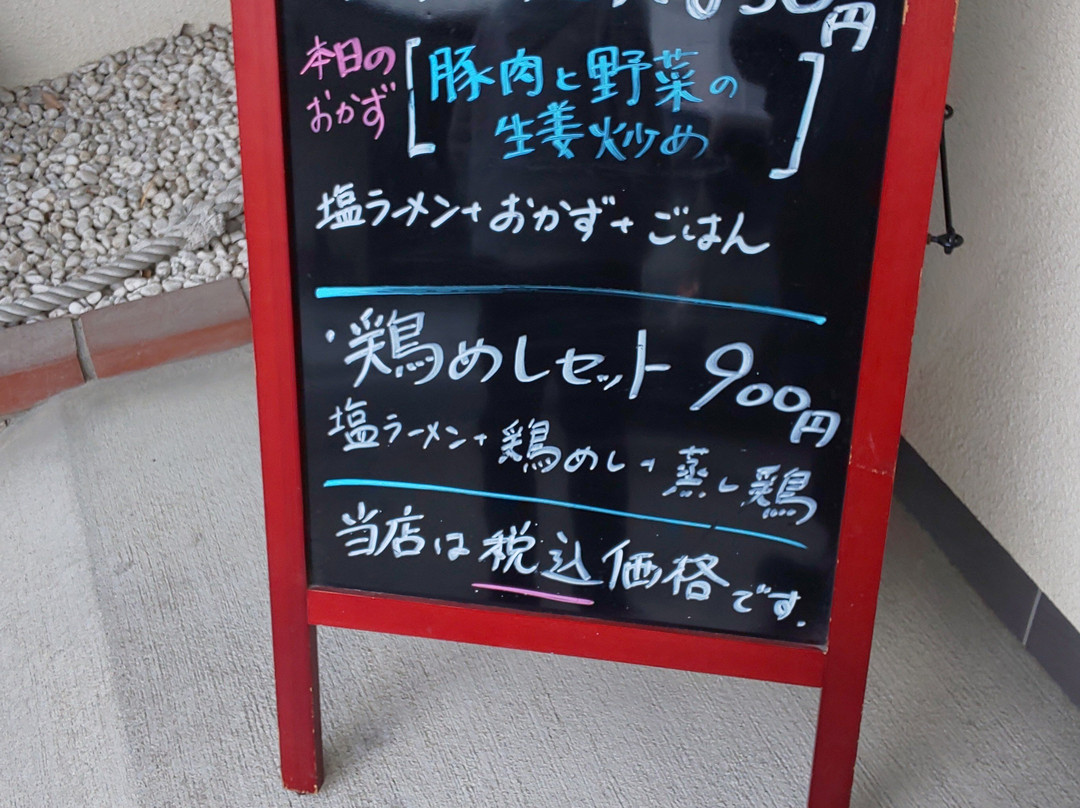 円
本日の
おかず
豚肉と野菜の
生姜炒め
塩ラーメン+おかず+ごはん
・鶏めしセット 900円
塩ラーメン+鶏めし+蒸し鶏
当店は税込価格です.